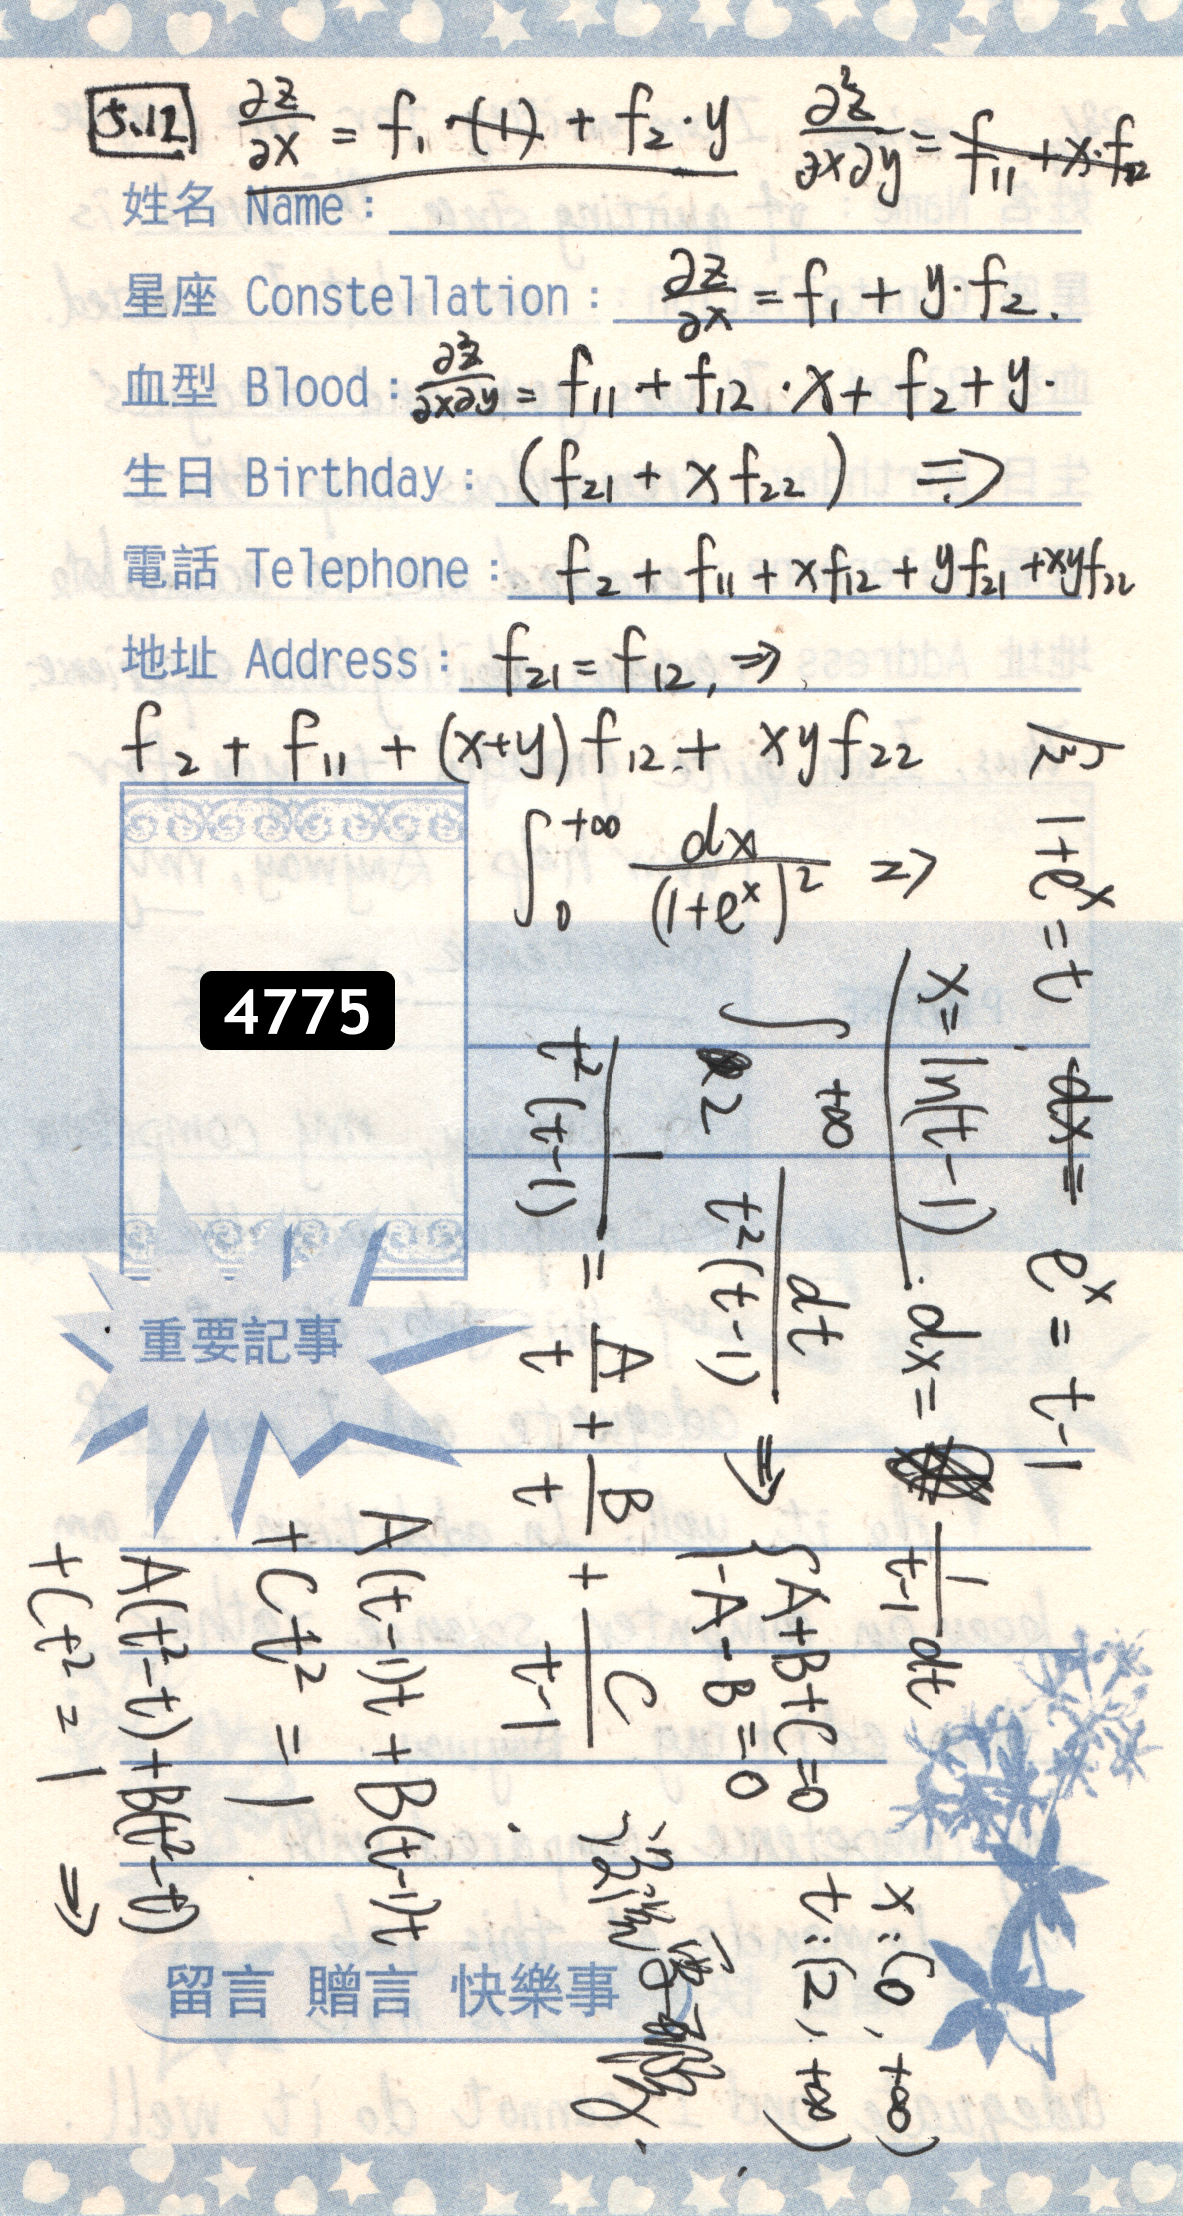 5.12 ∂z/∂x = f₁ · (1) + f₂ · y   ∂²z/∂x∂y = f₁₁ + x · f₁₂
姓名 Name :
星座 Constellation : ∂z/∂x = f₁ + y · f₂ .
血型 Blood : ∂²z/∂x∂y = f₁₁ + f₁₂ · x + f₂ + y ·
生日 Birthday : (f₂₁ + x f₂₂) ⇒
電話 Telephone : f₂ + f₁₁ + x f₁₂ + y f₂₁ + xy f₂₂
地址 Address : f₂₁ = f₁₂, ⇒
f₂ + f₁₁ + (x+y) f₁₂ + xy f₂₂
∫₀^{+∞} dx/(1+eˣ)² ⇒
1+eˣ = t   dx =   eˣ = t-1
x = ln(t-1) . dx = 1/(t-1) dt
x : (0, +∞)
t : (2, +∞)
∫₂^{+∞} dt/(t²(t-1)) ⇒ { A+B+C=0
-A-B=0
1/(t²(t-1)) = A/t + B/t + C/(t-1)
A(t-1)t + B(t-1)t
+Ct² = 1
A(t²-t) + B(t²-t)
+Ct² = 1 ⇒
4775
重要記事
留言 贈言 快樂事